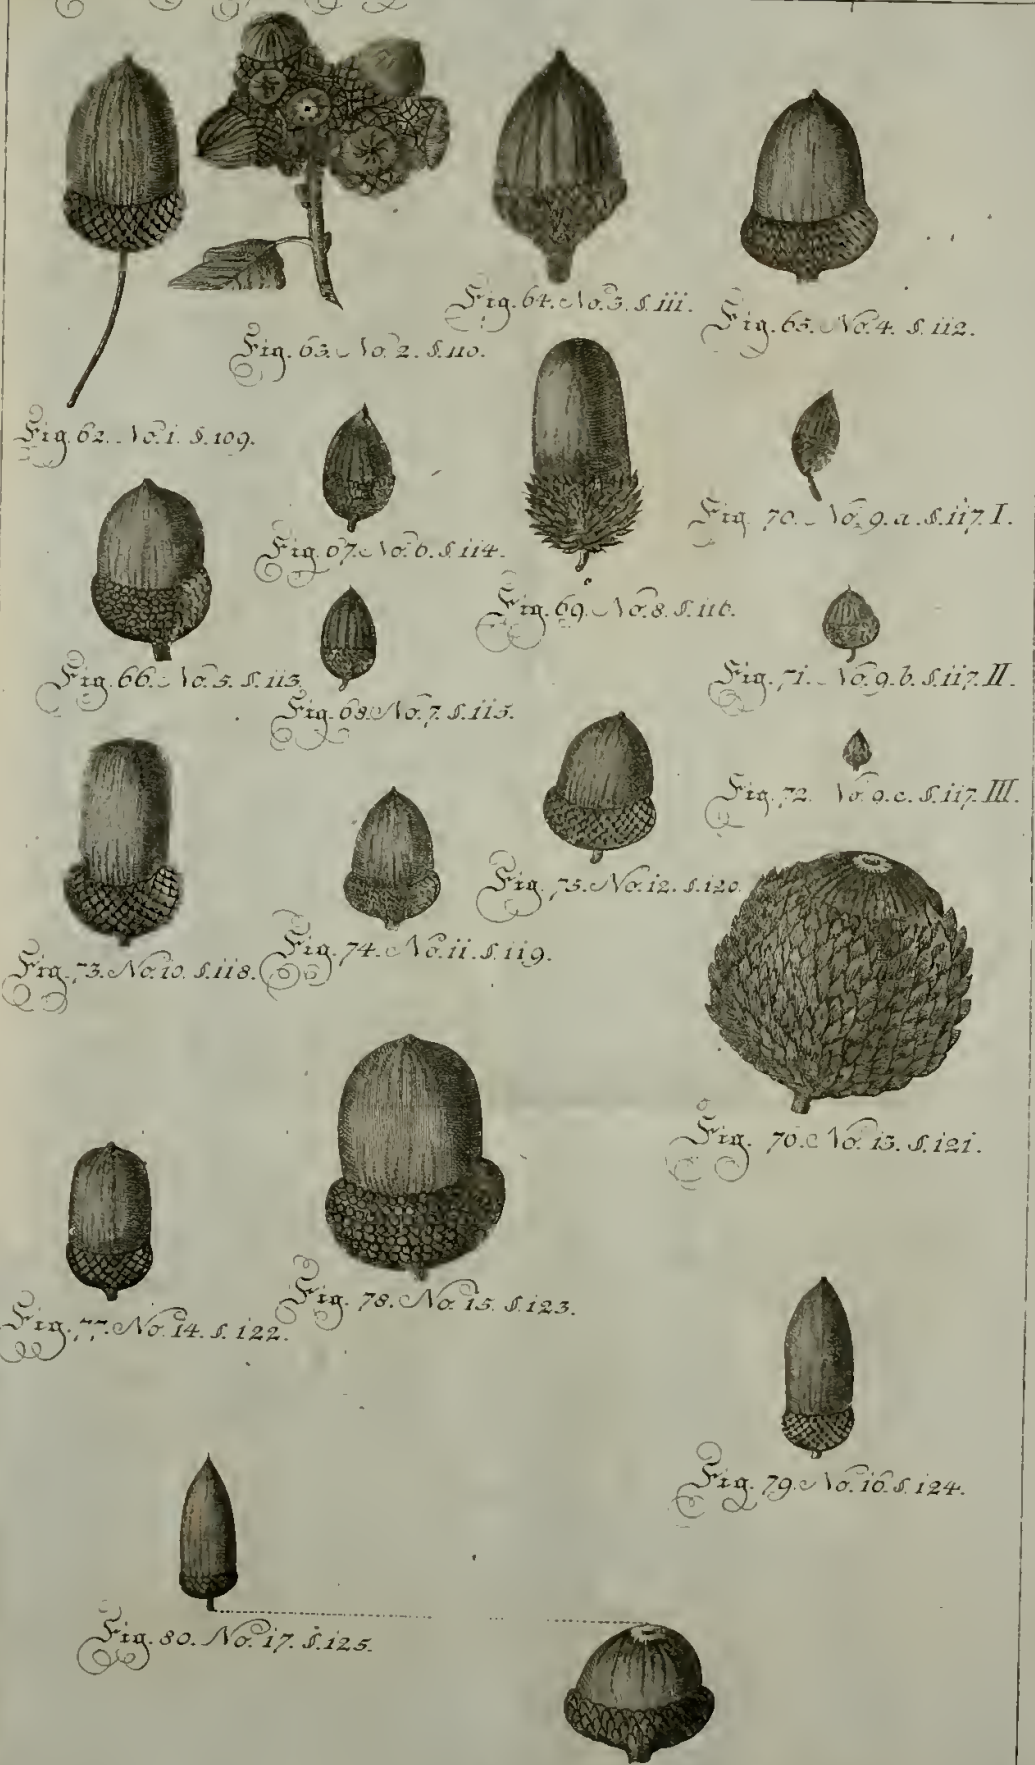 Fig. 62. No. 1. §. 109.
Fig. 63. No. 2. §. 110.
Fig. 64. No. 3. §. 111.
Fig. 65. No. 4. §. 112.
Fig. 66. No. 5. §. 113.
Fig. 67. No. 6. §. 114.
Fig. 68. No. 7. §. 115.
Fig. 69. No. 8. §. 116.
Fig. 70. No. 9. a. §. 117. I.
Fig. 71. No. 9. b. §. 117. II.
Fig. 72. No. 9. c. §. 117. III.
Fig. 73. No. 10. §. 118.
Fig. 74. No. 11. §. 119.
Fig. 75. No. 12. §. 120.
Fig. 76. No. 13. §. 121.
Fig. 77. No. 14. §. 122.
Fig. 78. No. 15. §. 123.
Fig. 79. No. 16. §. 124.
Fig. 80. No. 17. §. 125.